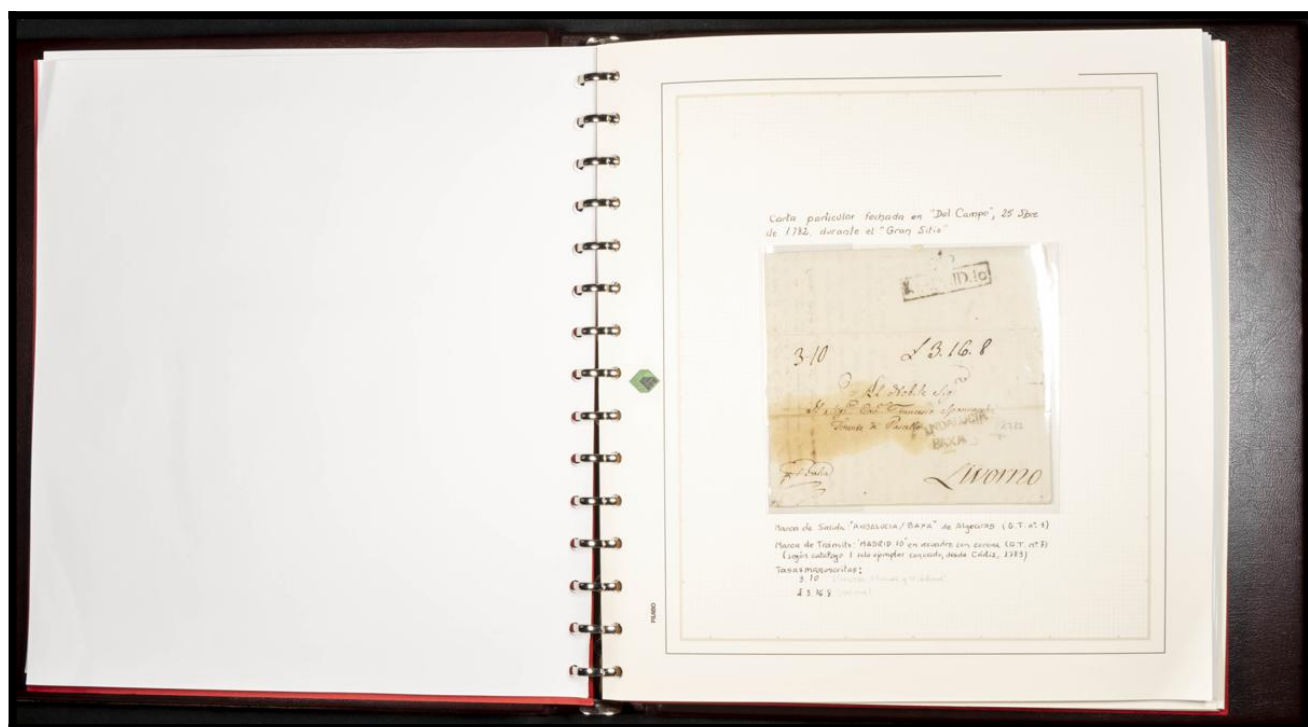 Carta particular fechada en "Del Campo", 25 Sbre
de 1782, durante el "Gran Sitio"
ID.10
3-10
£ 3.16.8
Al Noble Sig.
Francesco
ANDALUCIA
BAXA
Livorno
Marca de Salida: "ANDALUCIA / BAXA" de Algeciras (G.T. nº 1)
Marca de Tránsito: "MADRID.10" en recuadro con corona (G.T. nº 7)
(según catálogo 1 solo ejemplar conocido, desde Cádiz, 1783)
Tasas manuscritas:
3.10
£ 3.16.8
FILABO